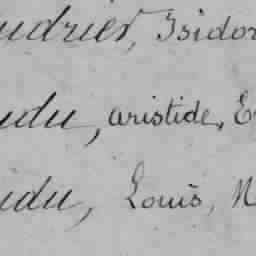 udrier, Isidor
udu, aristide, E
udu, Louis, N